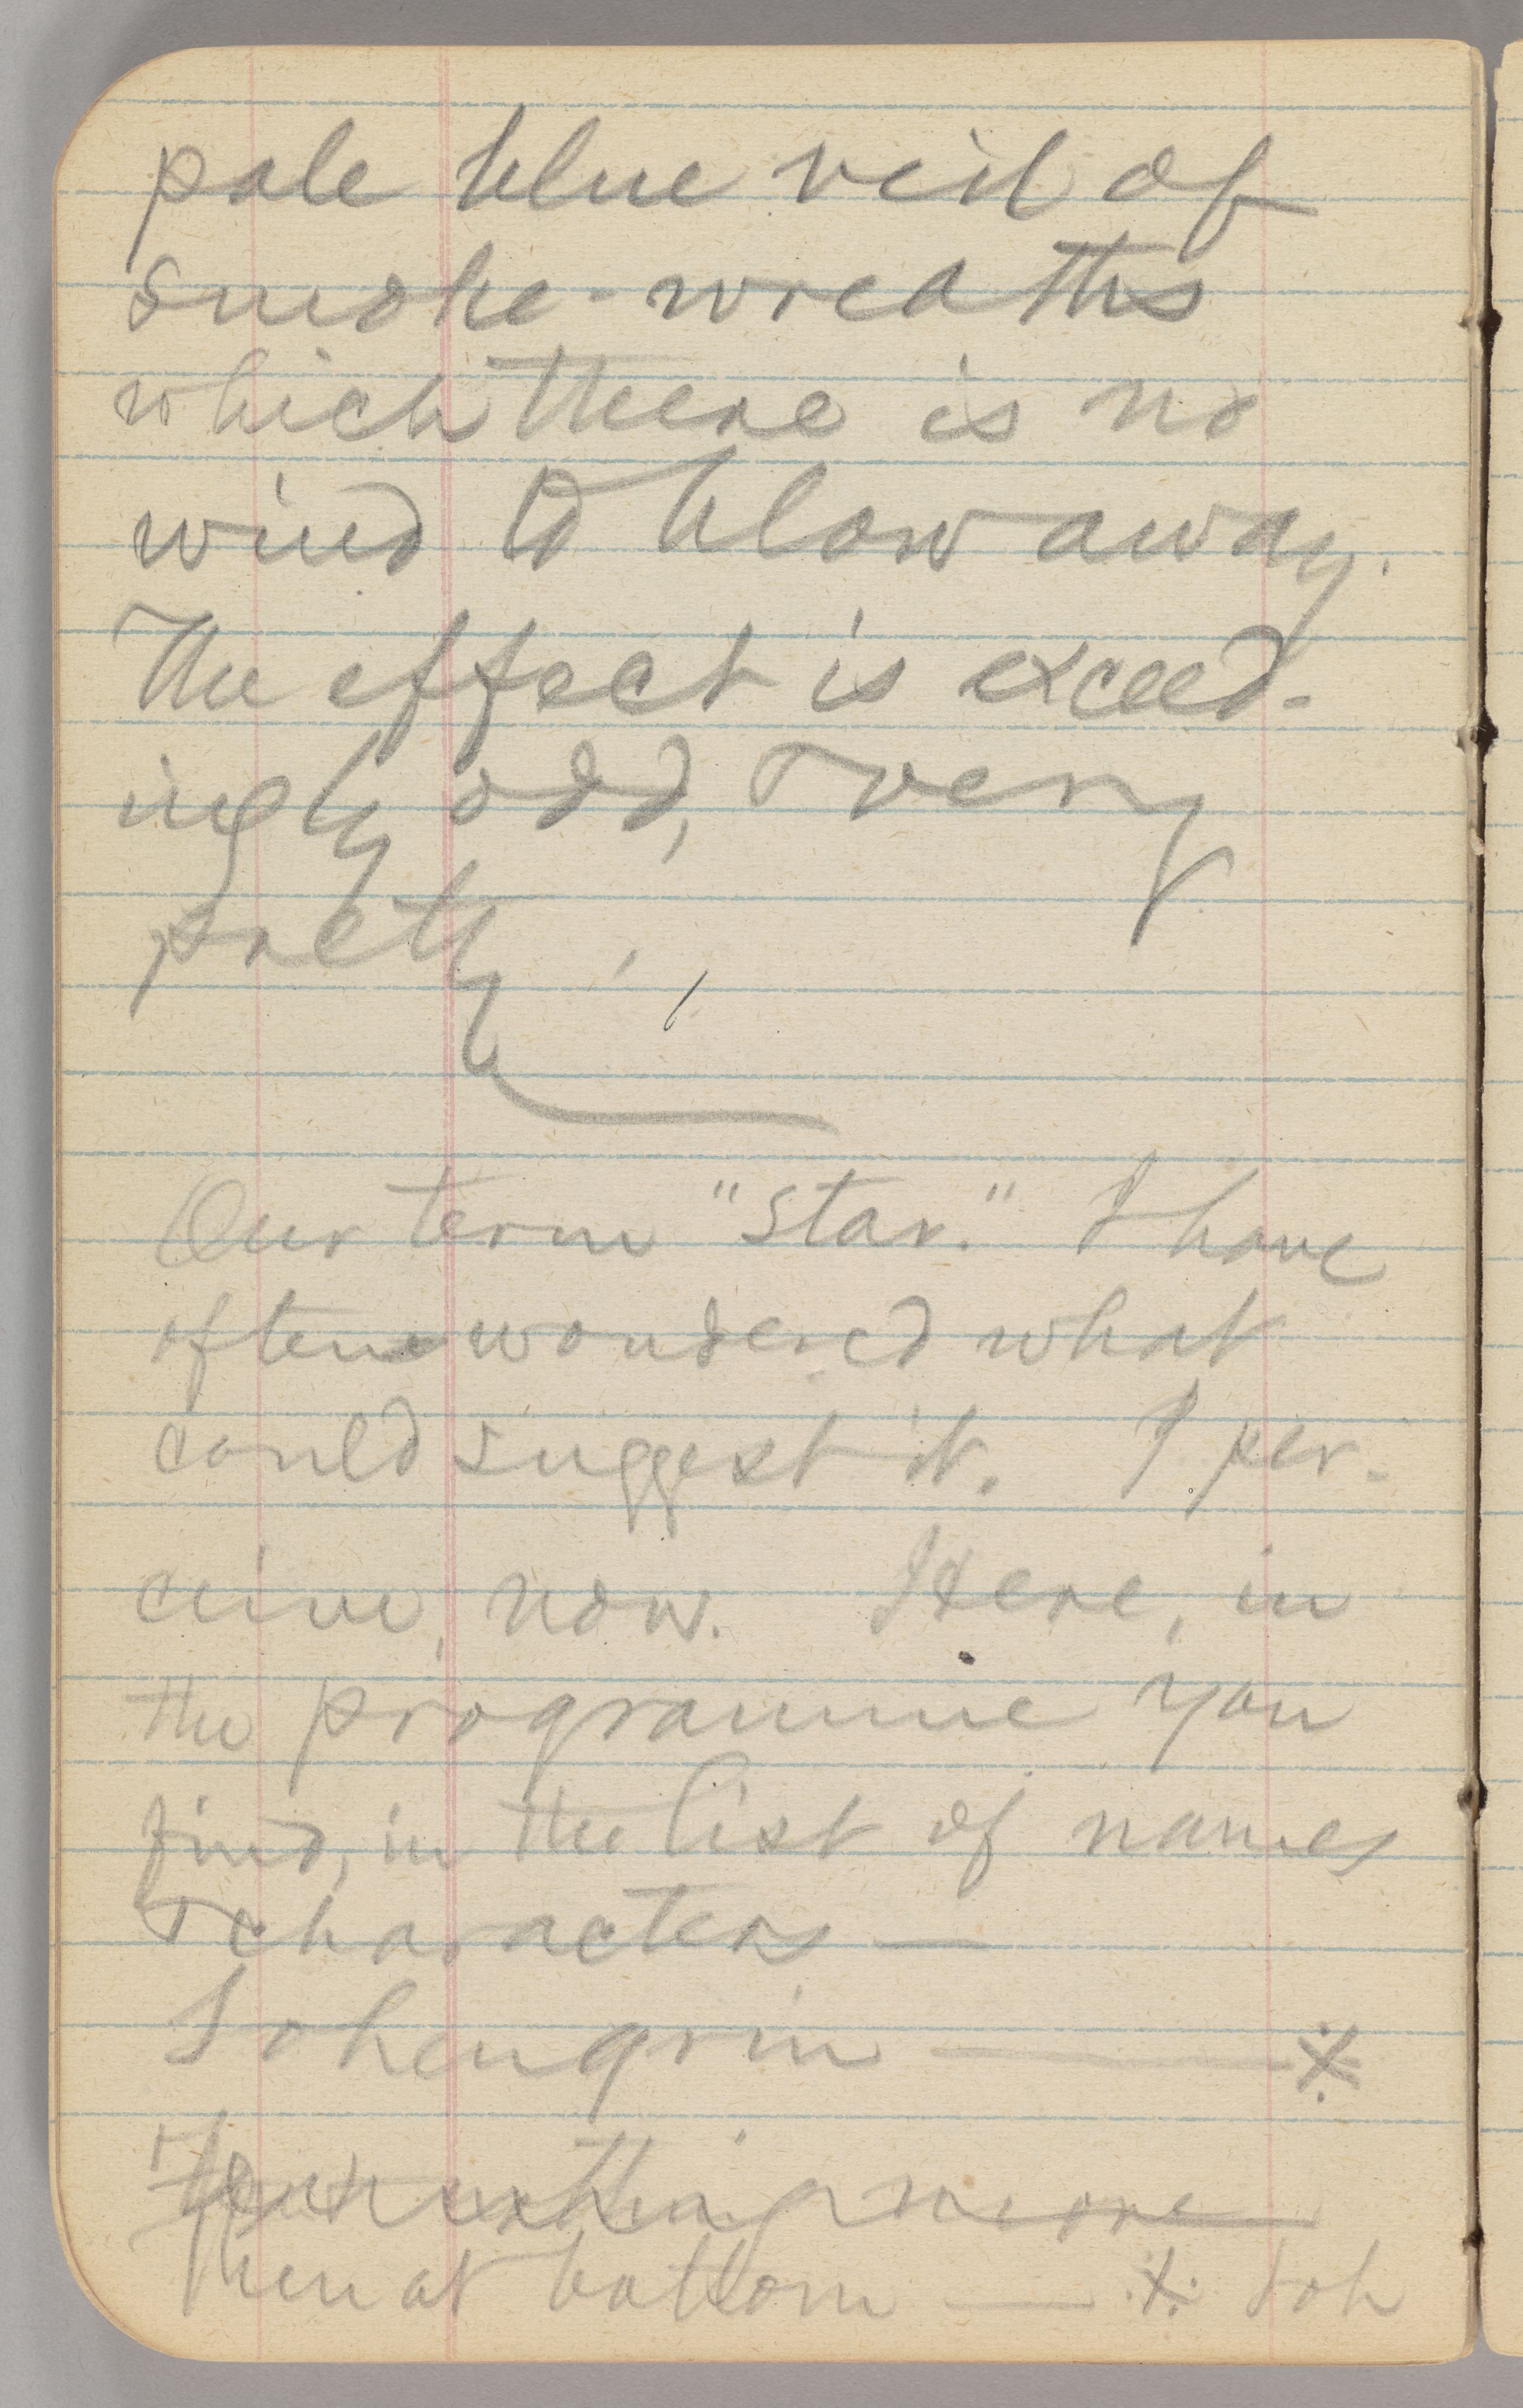 pale blue veil of
smoke-wreaths
which there is no
wind to blow away.
The effect is exceed-
ingly odd, & very
pretty.
Our term "star." I have
often wondered what
could suggest it. I per-
ceive, now. Here, in
the programme you
find, in the list of names
& characters —
Lohengrin — *
Then at bottom — * Loh